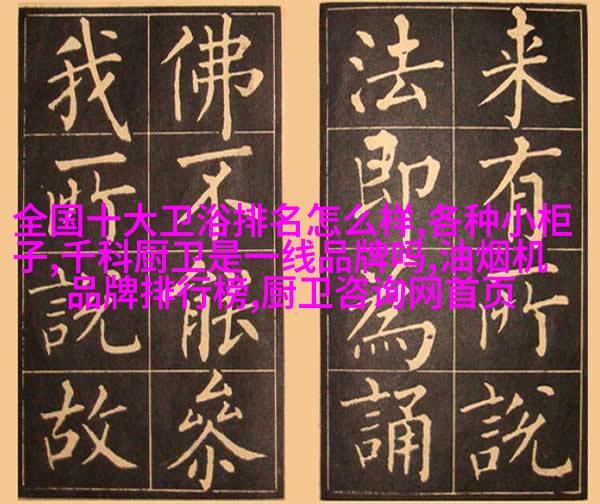 全国十大卫浴排名怎么样,各种小柜
子,千科厨卫是一线品牌吗,油烟机
品牌排行榜,厨卫咨询网首页
来有所說
法即為誦
佛不能叅
我所説故